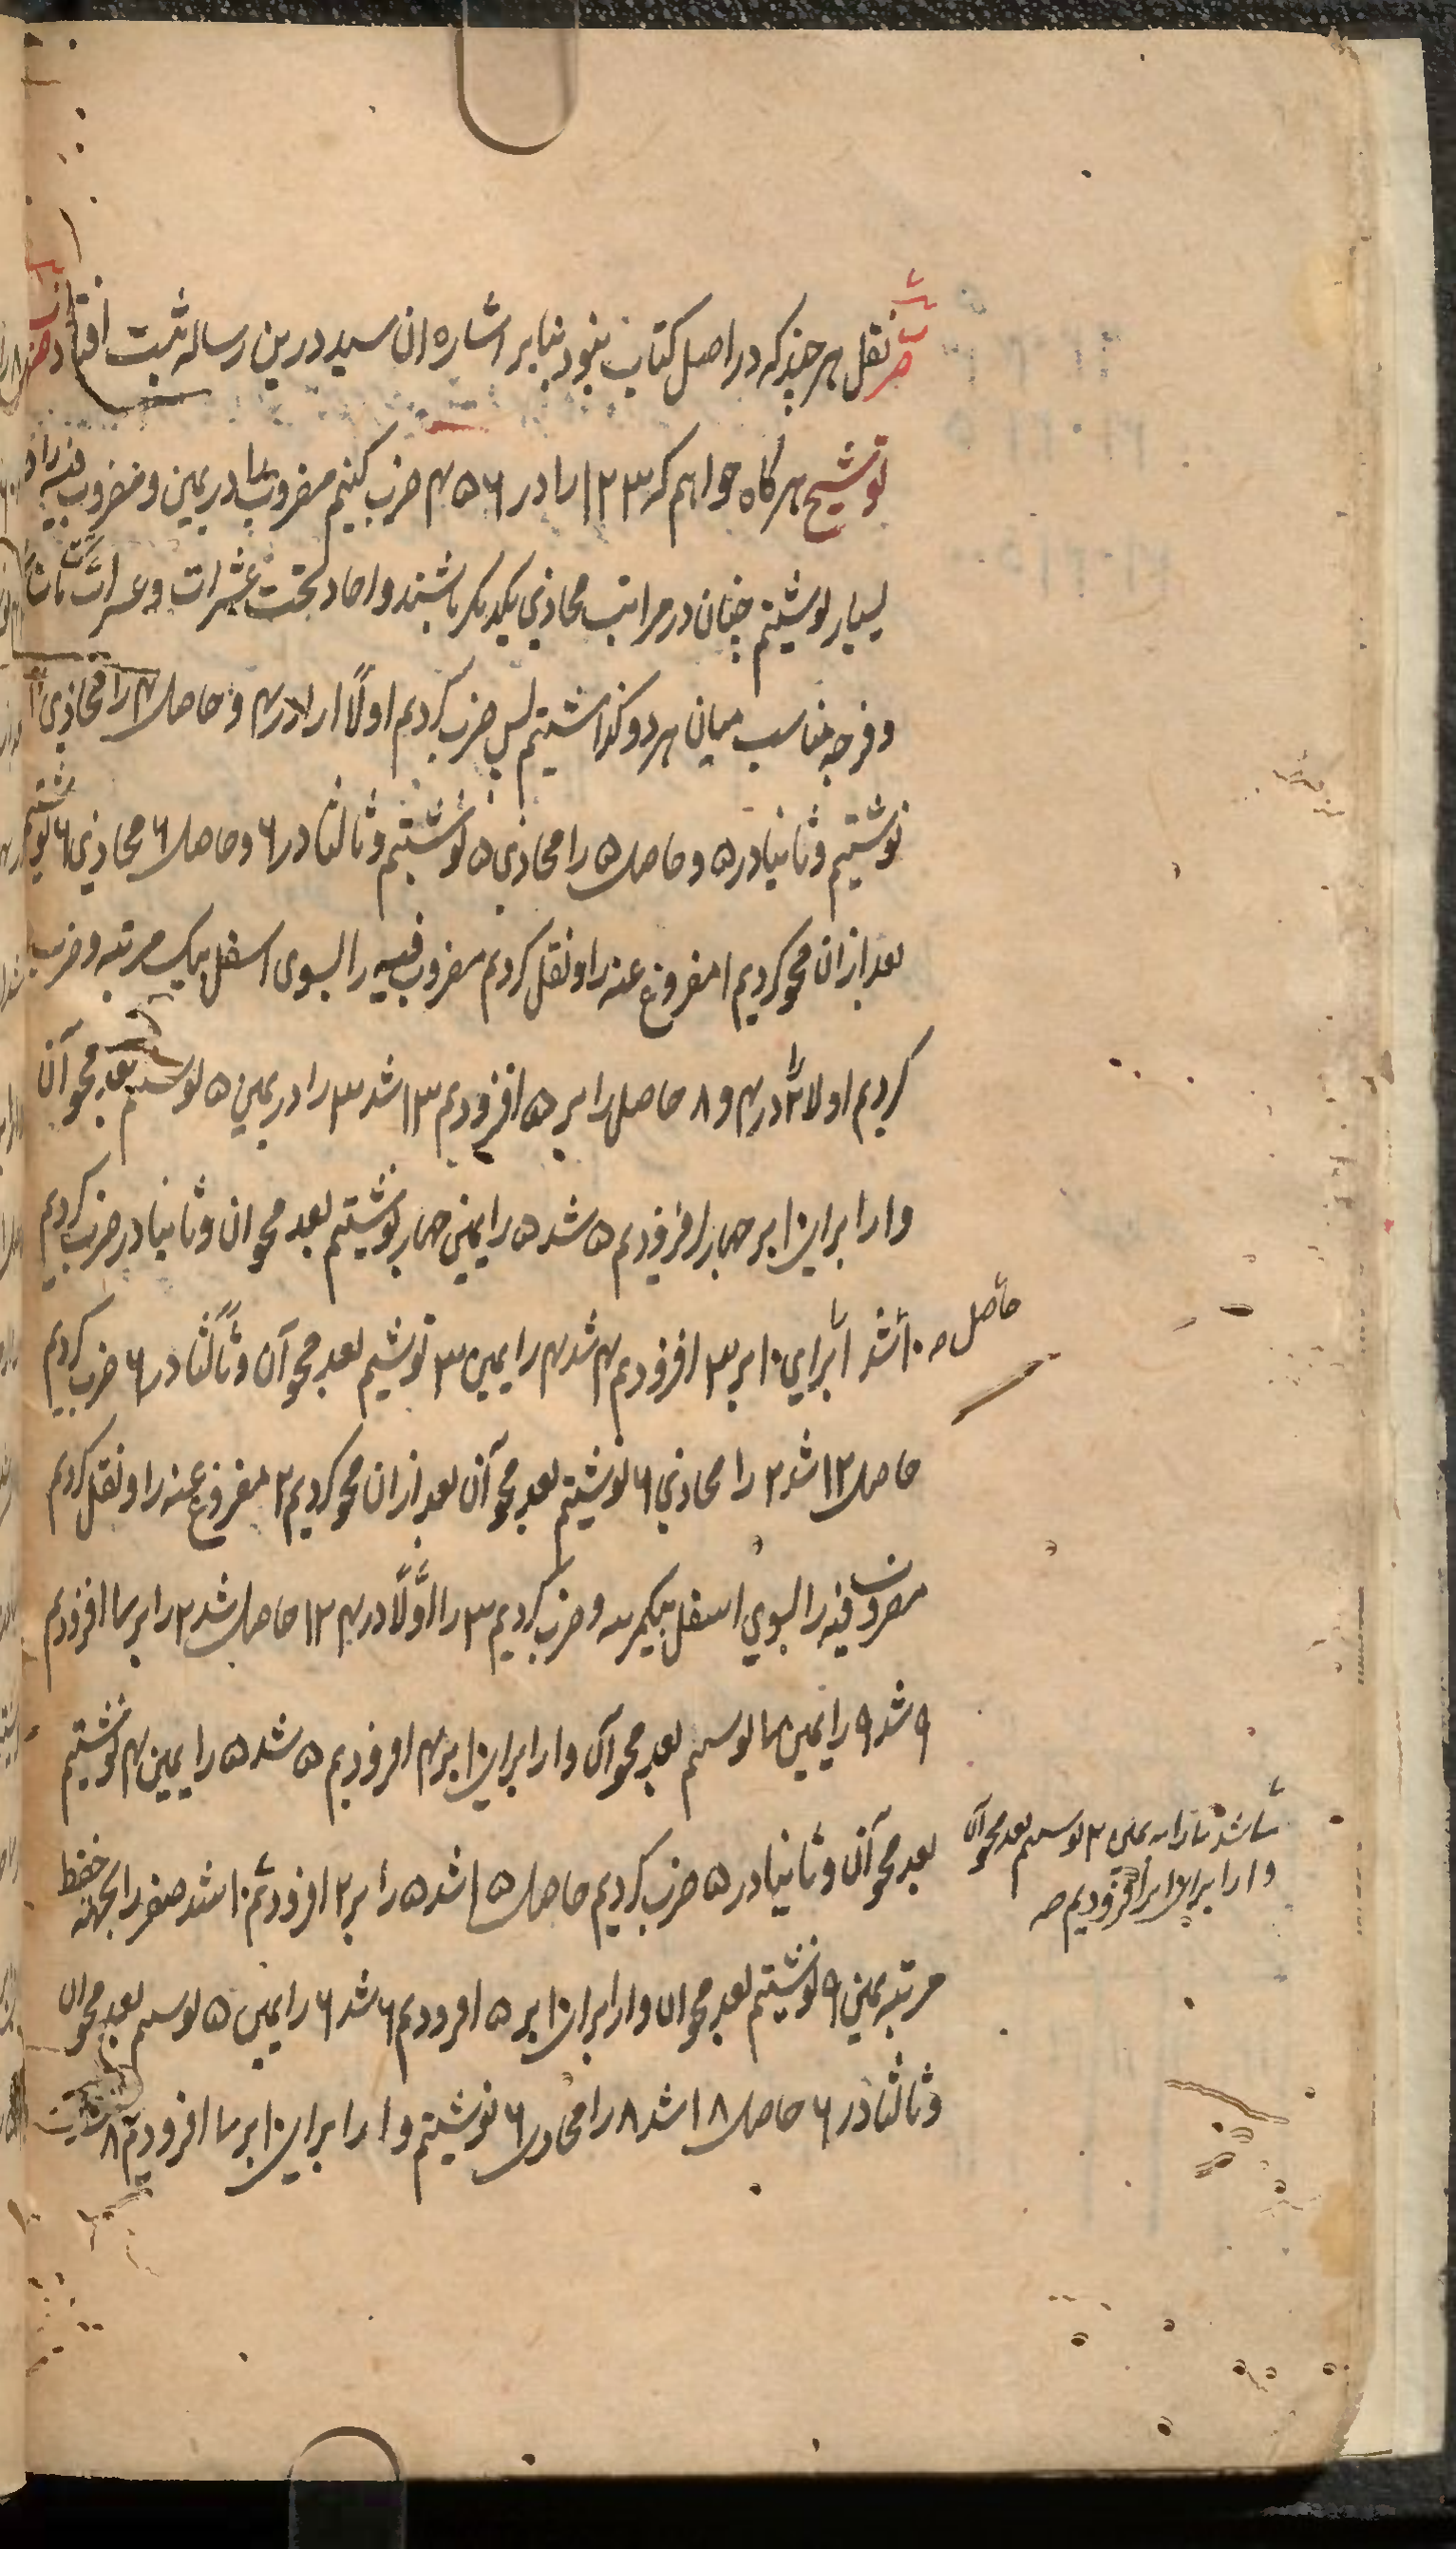 ضرب نقل هر چند که در اصل کتاب نبود بنابر اشاره ان سید درین رساله ثبت افتاد
توشیح هر گاه خواهم که ۱۲۳ را در ۴۵۶ ضرب کنیم مضروب را در یمین و مضروب فیه را در
یسار نوشتیم چنان در مراتب محاذی یکدیگر باشند و احاد تحت عشرات و عشرات تحت مات
و فرجه مناسب میان هر دو گذاشتیم پس ضرب کردیم اولاً ۱ را در ۴ و حاصل ۴ را محاذی ۴
نوشتیم و ثانیا در ۵ و حاصل ۵ را محاذی ۵ نوشتیم و ثالثا در ۶ و حاصل ۶ محاذی ۶ نوشتیم
بعد از ان محو کردیم ۱ مفروغ عنه را و نقل کردیم مضروب فیه را بسوی اسفل بیک مرتبه و ضرب
کردیم اولا ۲ را در ۴ و ۸ حاصل را بر ۵ افزودیم ۱۳ شد ۳ را در یمین ۵ نوشتیم بعد محو آن
و ۱ را برای ۱۰ بر چهار افزودیم ۵ شد ۵ را یمین چهار نوشتیم بعد محو ان و ثانیا در ضرب کردیم
حاصل ۱۰ شد ۱ برای ۱۰ بر ۳ افزودیم ۴ شد ۴ را یمین ۳ نوشتیم بعد محو آن و ثالثا در ۶ ضرب کردیم
حاصل ۱۲ شد ۲ را محاذی ۶ نوشتیم بعد محو آن بعد از ان محو کردیم ۲ مفروغ عنه را و نقل کردیم
مضروب فیه را بسوی اسفل بیکمرتبه و ضرب کردیم ۳ را اولاً در ۴ ۱۲ حاصل شد ۲ را بر ۷ افزودیم
۹ شد ۹ را یمین ۷ نوشتیم بعد محو آن و ۱ را برای ۱۰ بر ۴ افزودیم ۵ شد ۵ را یمین ۴ نوشتیم
بعد محو آن و ثانیا در ۵ ضرب کردیم حاصل ۱۵ شد ۵ را بر ۲ افزودیم ۱۰ شد صفر را بجهة حفظ
مرتبه یمین ۹ نوشتیم بعد محو ان و ۱ را برای ۱۰ بر ۵ افزودیم ۶ شد ۶ را یمین ۵ نوشتیم بعد محو ان
و ثالثا در ۶ حاصل ۱۸ شد ۸ را محاذی ۶ نوشتیم و ۱ را برای ۱۰ بر ۷ افزودیم ۸
۷ شد ۷ را یمین ۲ نوشتیم بعد محو آن
و ۱ را برای ۱۰ بر افزودیم صه